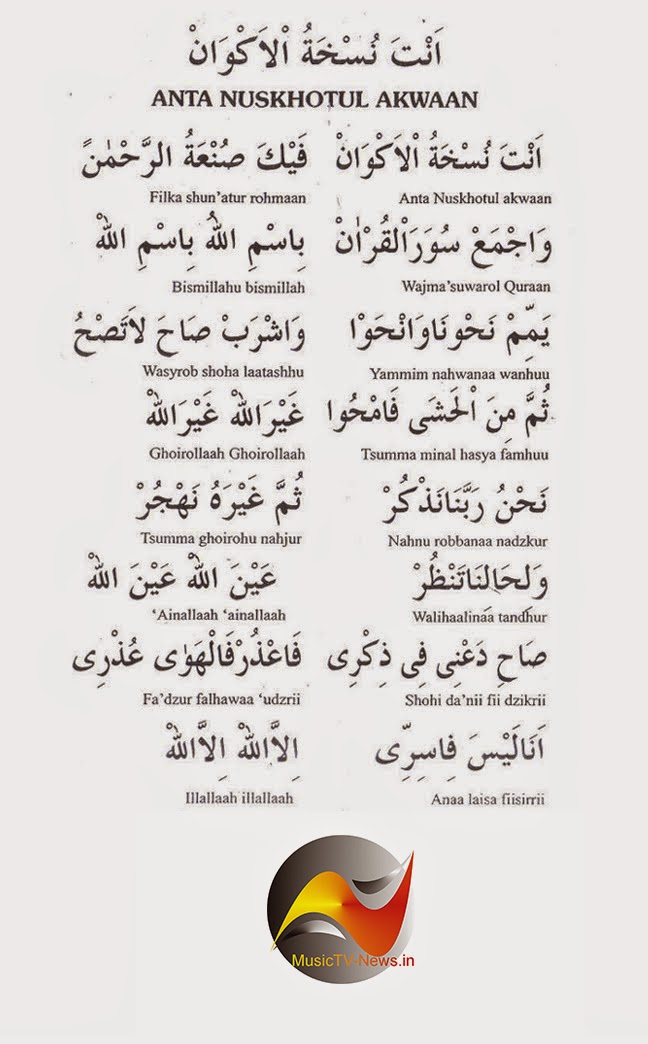 اَنْتَ نُسْخَةُ اْلاَكْوَانْ
ANTA NUSKHOTUL AKWAAN
اَنْتَ نُسْخَةُ اْلاَكْوَانْ فَيْكَ صُنْعَةُ الرَّحْمٰنً
Anta Nuskhotul akwaan Filka shun’atur rohmaan
وَاجْمَعْ سُوَرَاْلقُرْاٰنْ بِاسْمِ اللهُ بِاسْمِ اللهْ
Wajma’suwarol Quraan Bismillahu bismillah
يَمِّمْ نَحْونَاوَانْحَوْا وَاشْرَبْ صَاحَ لاَتَصْحُ
Yammim nahwanaa wanhuu Wasyrob shoha laatashhu
ثُمَّ مِنَ اْلحَشَى فَامْحُوا غَيْرَاللهْ غَيْرَاللهْ
Tsumma minal hasya famhuu Ghoirollaah Ghoirollaah
نَحْنُ رَبَّنَانَذْكُرْ ثُمَّ غَيْرَهُ نَهْجُرْ
Nahnu robbanaa nadzkur Tsumma ghoirohu nahjur
وَلحَالنَاتَنْظُرْ عَيْنَ اللهْ عَيْنَ اللهْ
Walihaalinaa tandhur ‘Ainallaah ‘ainallaah
صَاحِ دَعْنِى فِى ذِكْرِى فَاعْذُرْفَالْهَوٰى عُذْرِى
Shohi da’nii fii dzikrii Fa’dzur falhawaa ‘udzrii
اَنَالَيْسَ فِاسِرِّى اِلاَّاللهْ اِلاَّاللهْ
Anaa laisa fiisirrii Illallaah illallaah
MusicTV-News.in